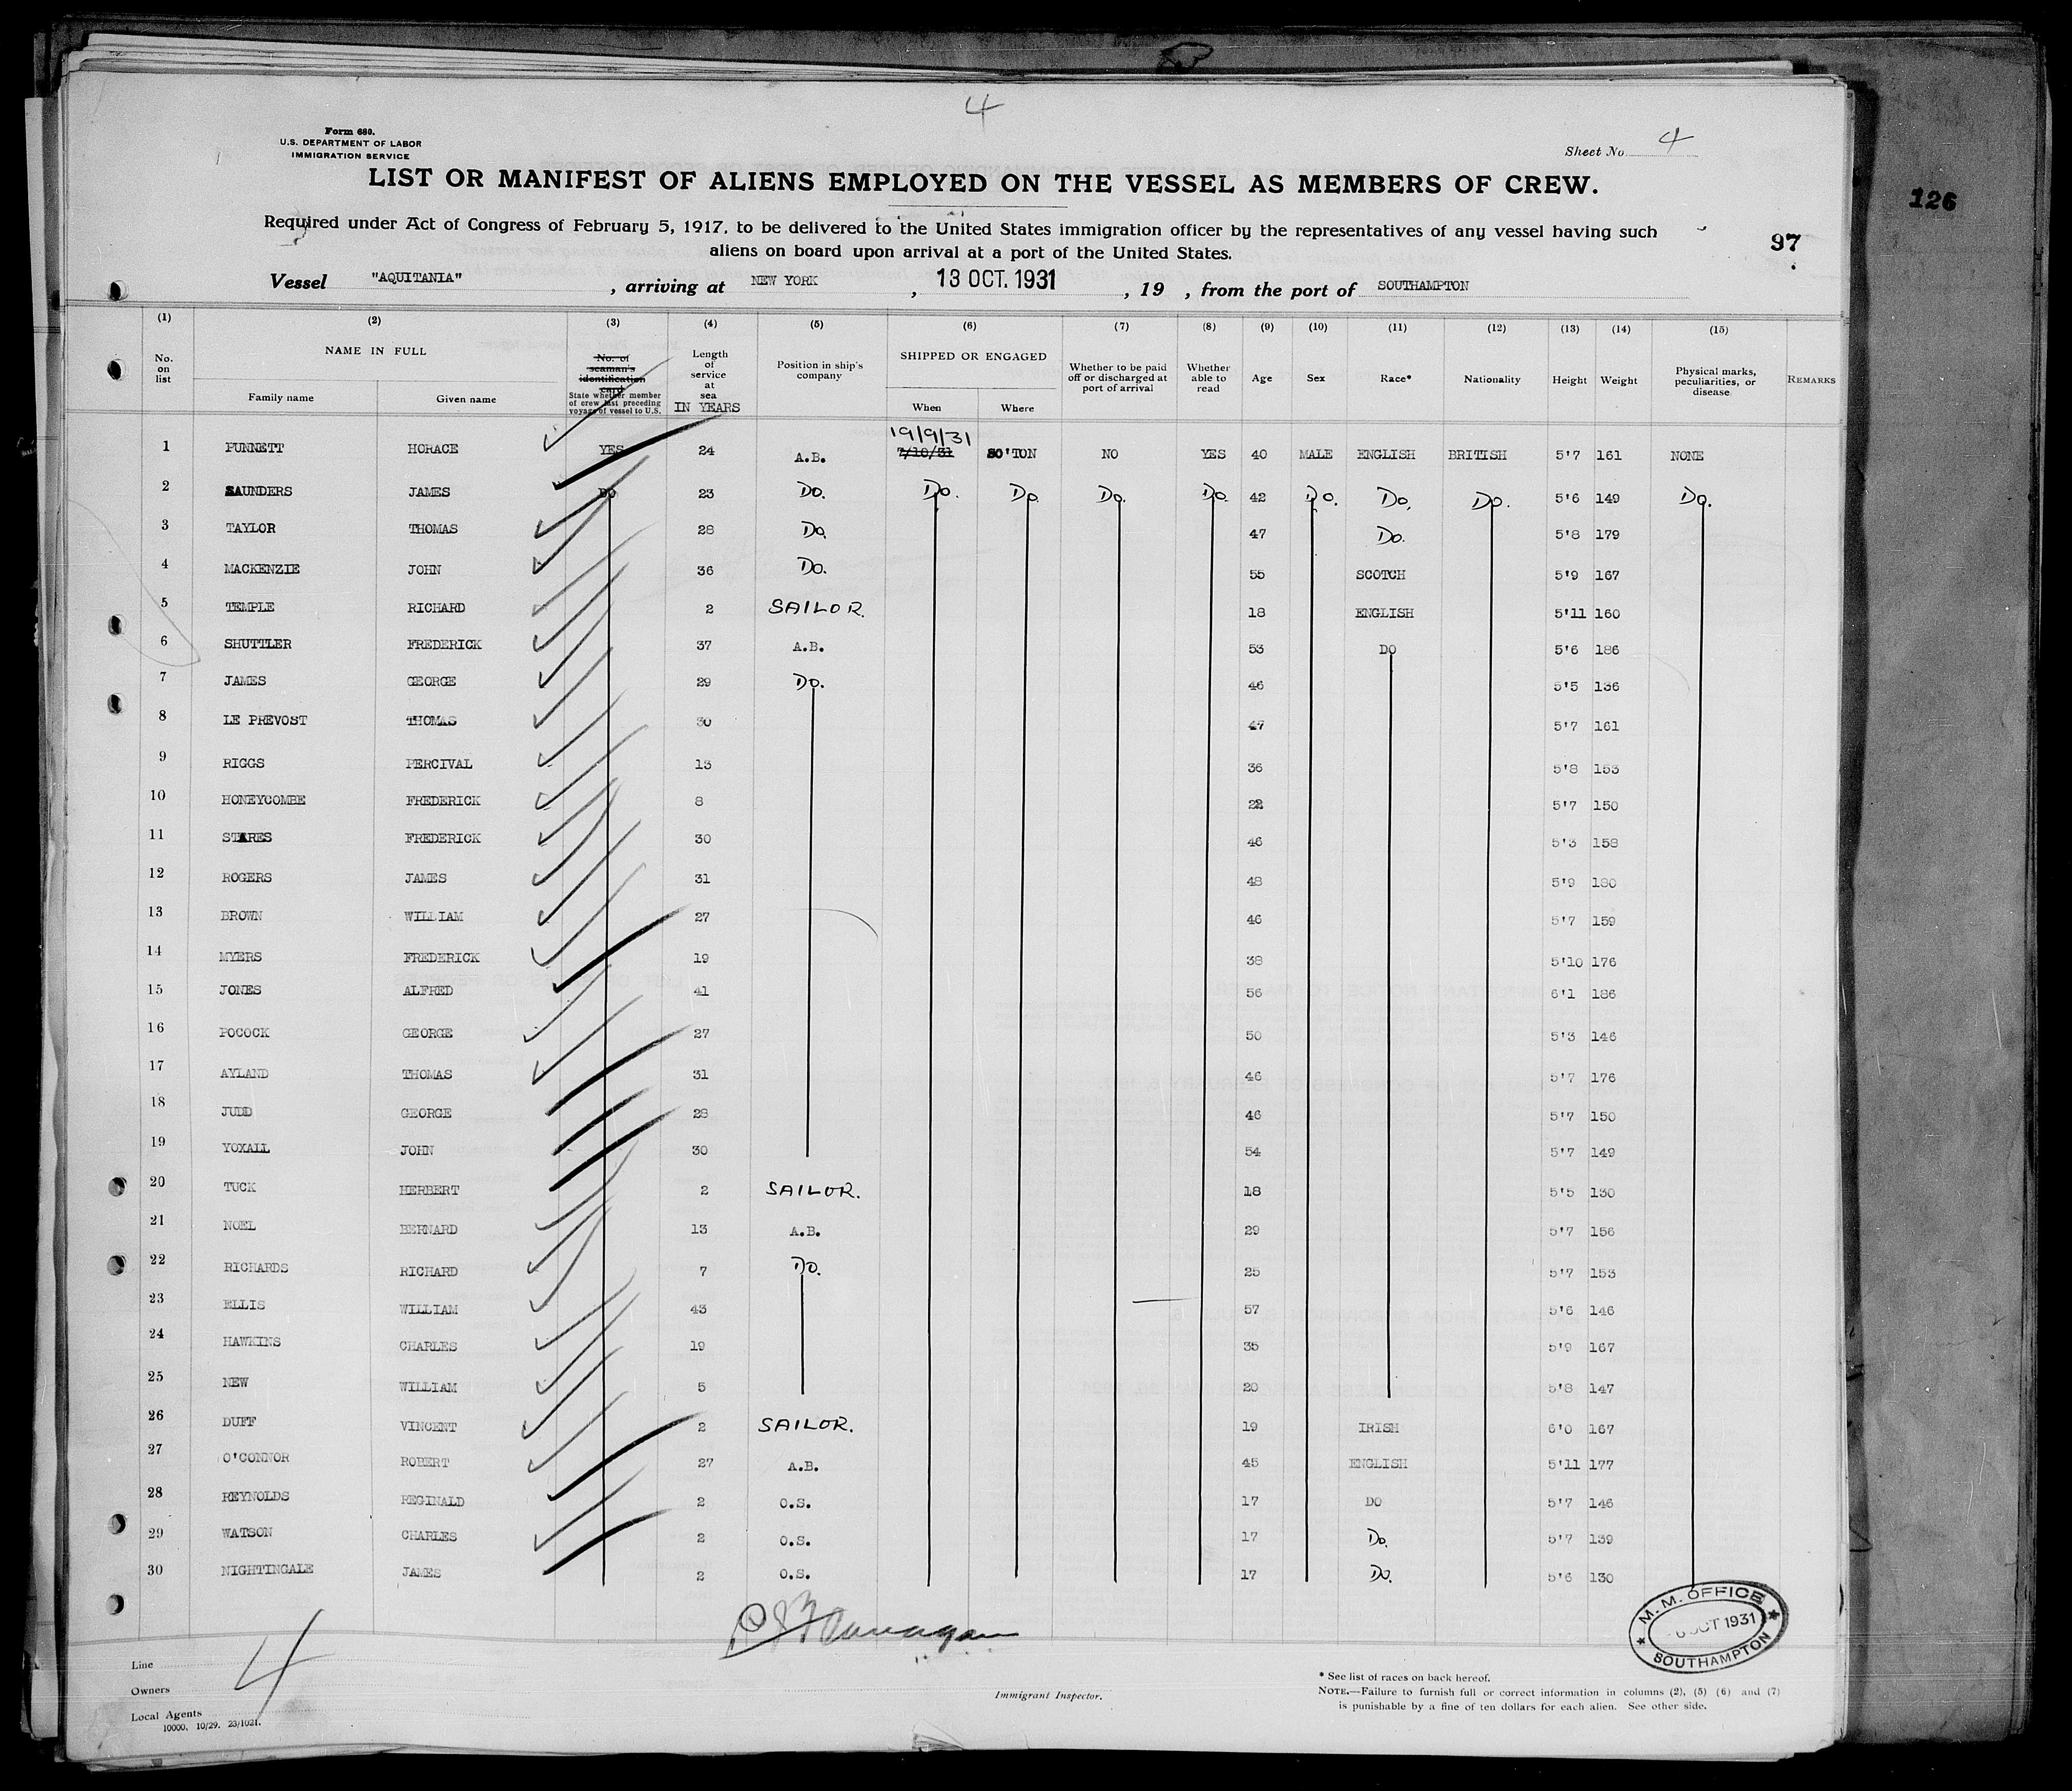 4
Form 680.
U.S. DEPARTMENT OF LABOR
IMMIGRATION SERVICE
Sheet No. 4
LIST OR MANIFEST OF ALIENS EMPLOYED ON THE VESSEL AS MEMBERS OF CREW.
126
Required under Act of Congress of February 5, 1917, to be delivered to the United States immigration officer by the representatives of any vessel having such
aliens on board upon arrival at a port of the United States.
97
Vessel "AQUITANIA" , arriving at NEW YORK , 13 OCT. 1931 , 19 , from the port of SOUTHAMPTON
(1) (2) (3) (4) (5) (6) (7) (8) (9) (10) (11) (12) (13) (14) (15)
No. on list NAME IN FULL Family name Given name No. of seaman's identification card State whether member of crew last preceding voyage of vessel to U.S. Length of service at sea IN YEARS Position in ship's company SHIPPED OR ENGAGED When Where Whether to be paid off or discharged at port of arrival Whether able to read Age Sex Race* Nationality Height Weight Physical marks, peculiarities, or disease REMARKS
19/9/31
1 PUNNETT HORACE YES 24 A.B. 7/10/31 SO'TON NO YES 40 MALE ENGLISH BRITISH 5'7 161 NONE
2 SAUNDERS JAMES DO 23 Do. Do. Do. Do. Do. 42 Do. Do. Do. 5'6 149 Do.
3 TAYLOR THOMAS 28 Do. 47 Do. 5'8 179
4 MACKENZIE JOHN 36 Do. 55 SCOTCH 5'9 167
5 TEMPLE RICHARD 2 SAILOR. 18 ENGLISH 5'11 160
6 SHUTTLER FREDERICK 37 A.B. 53 DO 5'6 186
7 JAMES GEORGE 29 Do. 46 5'5 136
8 LE PREVOST THOMAS 30 47 5'7 161
9 RIGGS PERCIVAL 13 36 5'8 153
10 HONEYCOMBE FREDERICK 8 22 5'7 150
11 STARES FREDERICK 30 46 5'3 158
12 ROGERS JAMES 31 48 5'9 180
13 BROWN WILLIAM 27 46 5'7 159
14 MYERS FREDERICK 19 38 5'10 176
15 JONES ALFRED 41 56 6'1 186
16 POCOCK GEORGE 27 50 5'3 146
17 AYLAND THOMAS 31 46 5'7 176
18 JUDD GEORGE 28 46 5'7 150
19 YOXALL JOHN 30 54 5'7 149
20 TUCK HERBERT 2 SAILOR. 18 5'5 130
21 NOEL BERNARD 13 A.B. 29 5'7 156
22 RICHARDS RICHARD 7 Do. 25 5'7 153
23 ELLIS WILLIAM 43 57 5'6 146
24 HAWKINS CHARLES 19 35 5'9 167
25 NEW WILLIAM 5 20 5'8 147
26 DUFF VINCENT 2 SAILOR. 19 IRISH 6'0 167
27 O'CONNOR ROBERT 27 A.B. 45 ENGLISH 5'11 177
28 REYNOLDS REGINALD 2 O.S. 17 DO 5'7 146
29 WATSON CHARLES 2 O.S. 17 Do. 5'7 139
30 NIGHTINGALE JAMES 2 O.S. 17 Do. 5'6 130
M. M. OFFICE
OCT 1931
SOUTHAMPTON
4
Line
Owners
Local Agents
10000. 10/29. 23/1021.
Immigrant Inspector.
* See list of races on back hereof.
NOTE.—Failure to furnish full or correct information in columns (2), (5) (6) and (7)
is punishable by a fine of ten dollars for each alien. See other side.